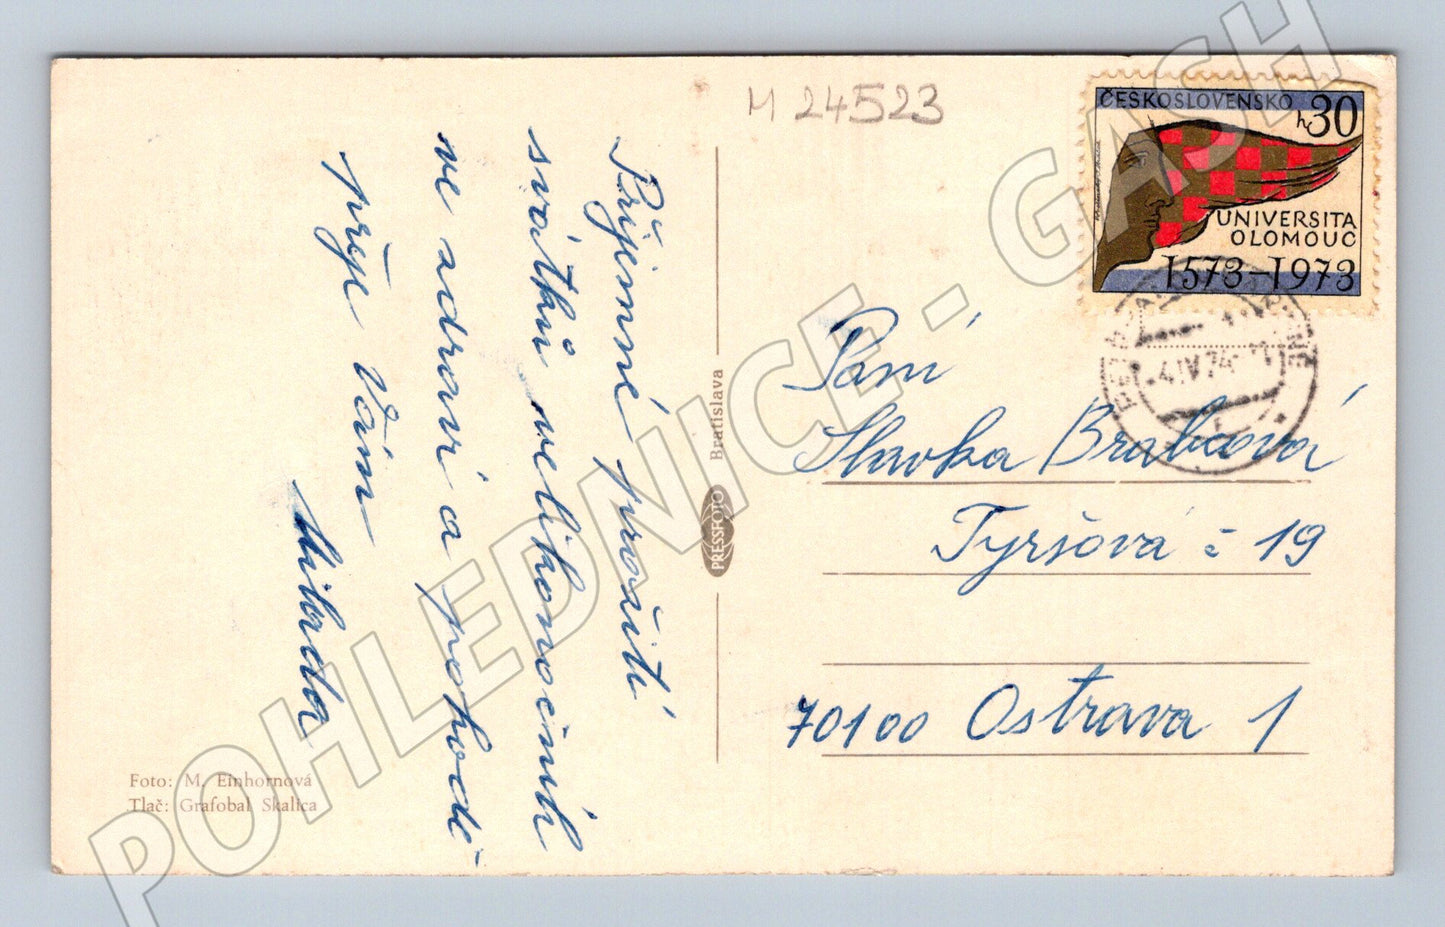 M 24523
ČESKOSLOVENSKO
h 30
UNIVERSITA
OLOMOUC
1573-1973
4.IV.74
Příjemné prožití
svátků velikonočních
ve zdraví a pohodě
přeje Vám
Milada
Paní
Slavka Brabcová
Tyršová č 19
70100 Ostrava 1
PRESSFOTO Bratislava
Foto: M. Einhornová
Tlač: Grafobal Skalica
POHLEDNICE - GASH